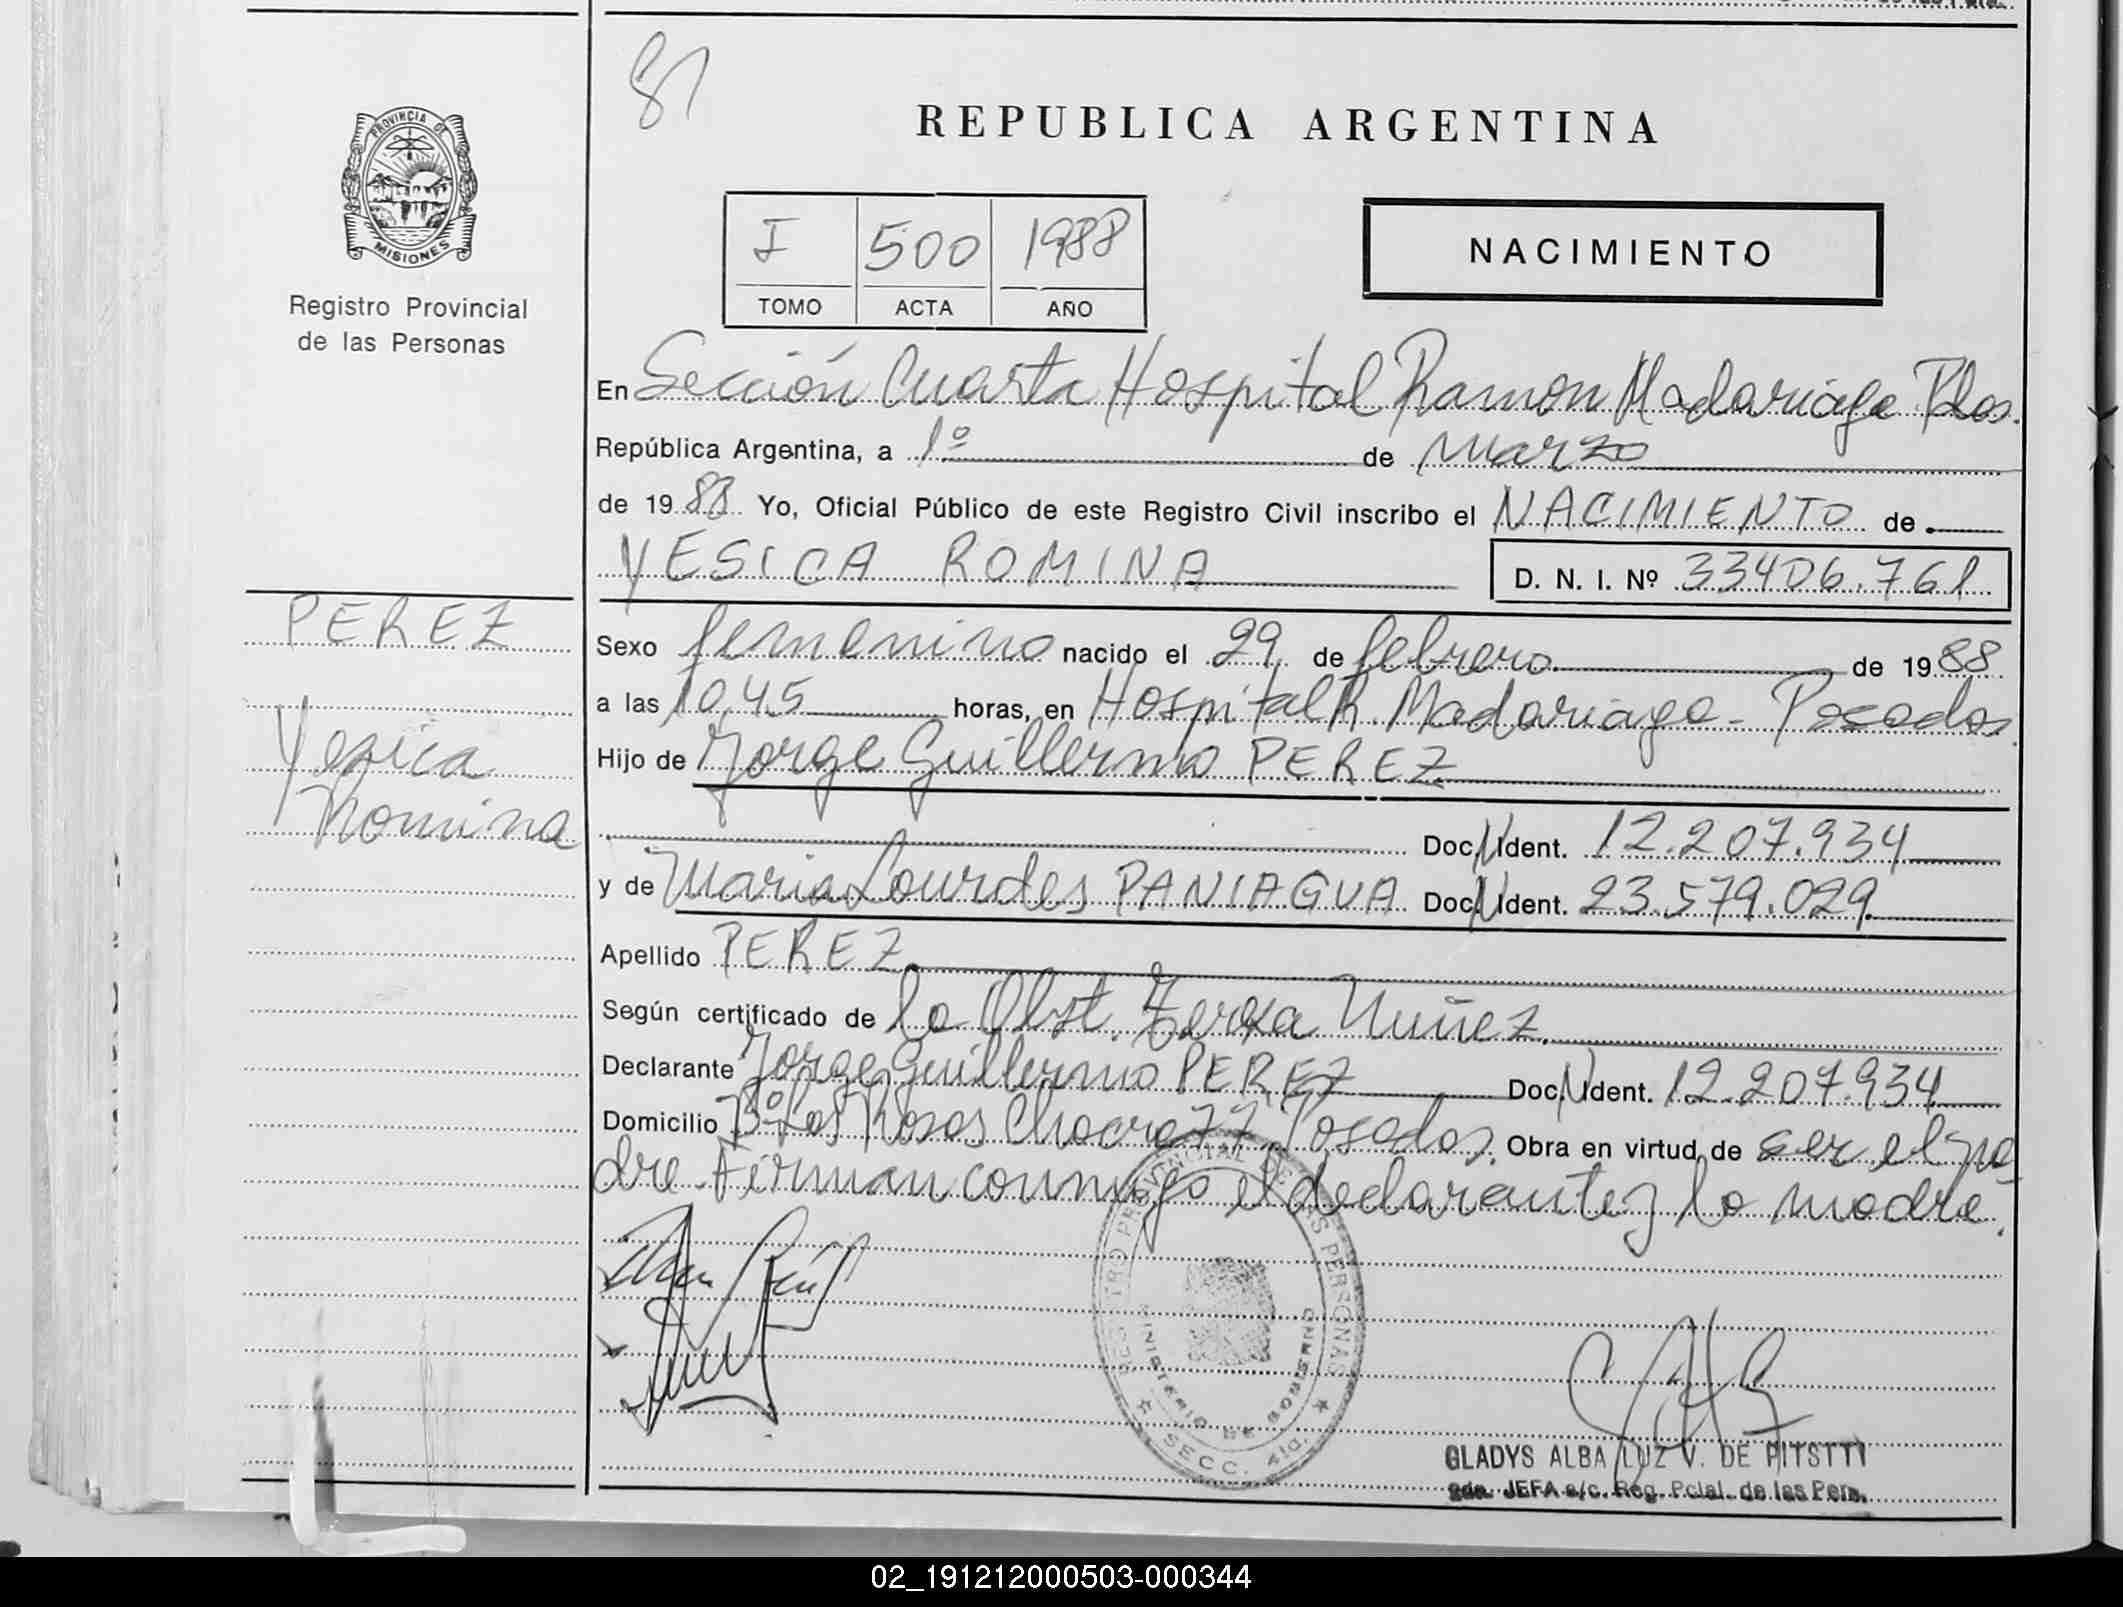 81
REPUBLICA ARGENTINA
PROVINCIA DE
MISIONES
Registro Provincial
de las Personas
I 500 1988
TOMO ACTA AÑO
NACIMIENTO
En Sección Cuarta Hospital Ramon Madariaga Pdas.
República Argentina, a 1º de Marzo
de 1988 Yo, Oficial Público de este Registro Civil inscribo el NACIMIENTO de
YESICA ROMINA D. N. I. Nº 33406.761
PEREZ
Yesica
Romina
Sexo femenino nacido el 29 de febrero de 1988
a las 10,45 horas, en Hospital R. Madariaga - Posadas
Hijo de Jorge Guillermo PEREZ
Doc. N Ident. 12.207.934
y de Maria Lourdes PANIAGUA Doc. N Ident. 23.579.029
Apellido PEREZ
Según certificado de la Obst. Nuñez
Declarante Jorge Guillermo PEREZ Doc. N Ident. 12.207.934
Domicilio Bº Las Rosas Chacra 77 Posadas. Obra en virtud de ser el pa
dre. Firman conmigo el declarante y la madre.
REGISTRO PROVINCIAL DE LAS PERSONAS
MINISTERIO DE GOBIERNO
SECC. 4ta.
GLADYS ALBA LUZ V. DE PITSTTI
2da. JEFA a/c. Reg. Pcial. de las Pers.
02_191212000503-000344